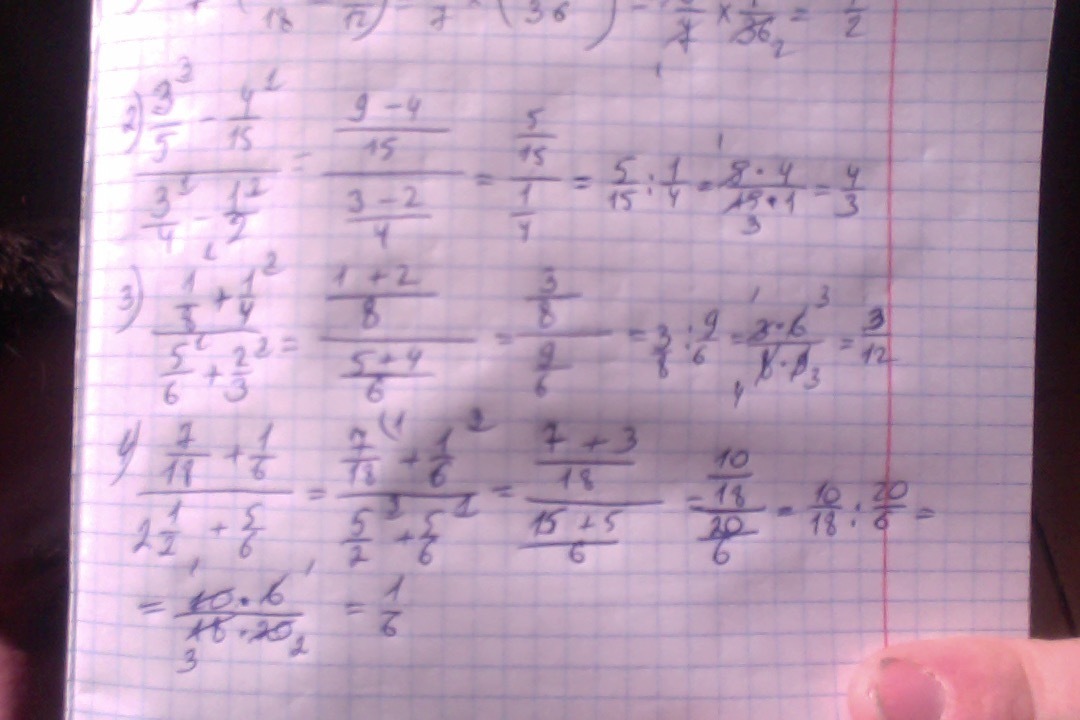 2) (3/5 - 4/15) / (3/4 - 1/2) = ((9 - 4)/15) / ((3 - 2)/4) = (5/15) / (1/4) = 5/15 : 1/4 = (5 · 4)/(15 · 1) = 4/3
3) (1/8 + 1/4) / (5/6 + 2/3) = ((1 + 2)/8) / ((5 + 4)/6) = (3/8) / (9/6) = 3/8 : 9/6 = (3 · 6)/(8 · 9) = 3/12
4) (7/18 + 1/6) / (2 1/2 + 5/6) = (7/18 + 1/6) / (5/2 + 5/6) = ((7 + 3)/18) / ((15 + 5)/6) = (10/18) / (20/6) = 10/18 : 20/6 =
= (10 · 6)/(18 · 20) = 1/6